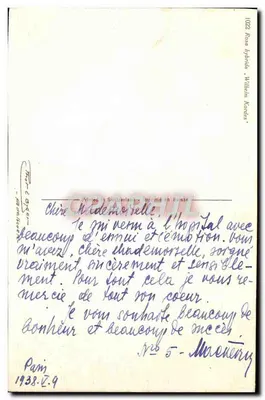 1022 Rosa hybrida „Wilhelm Kordes"
Chère Mademoiselle,
Je mi venu à l'hopital avec
beaucoup d'ennui et émotion. Vous
m'avez, chère Mademoiselle, soigné
vraiment sincèrement et sensible-
ment. Pour tout cela je vous re-
mercie, de tout son coeur.
Je vous souhaite beaucoup de
bonheur et beaucoup de succès
No 5 -
Paris
1938.V.9